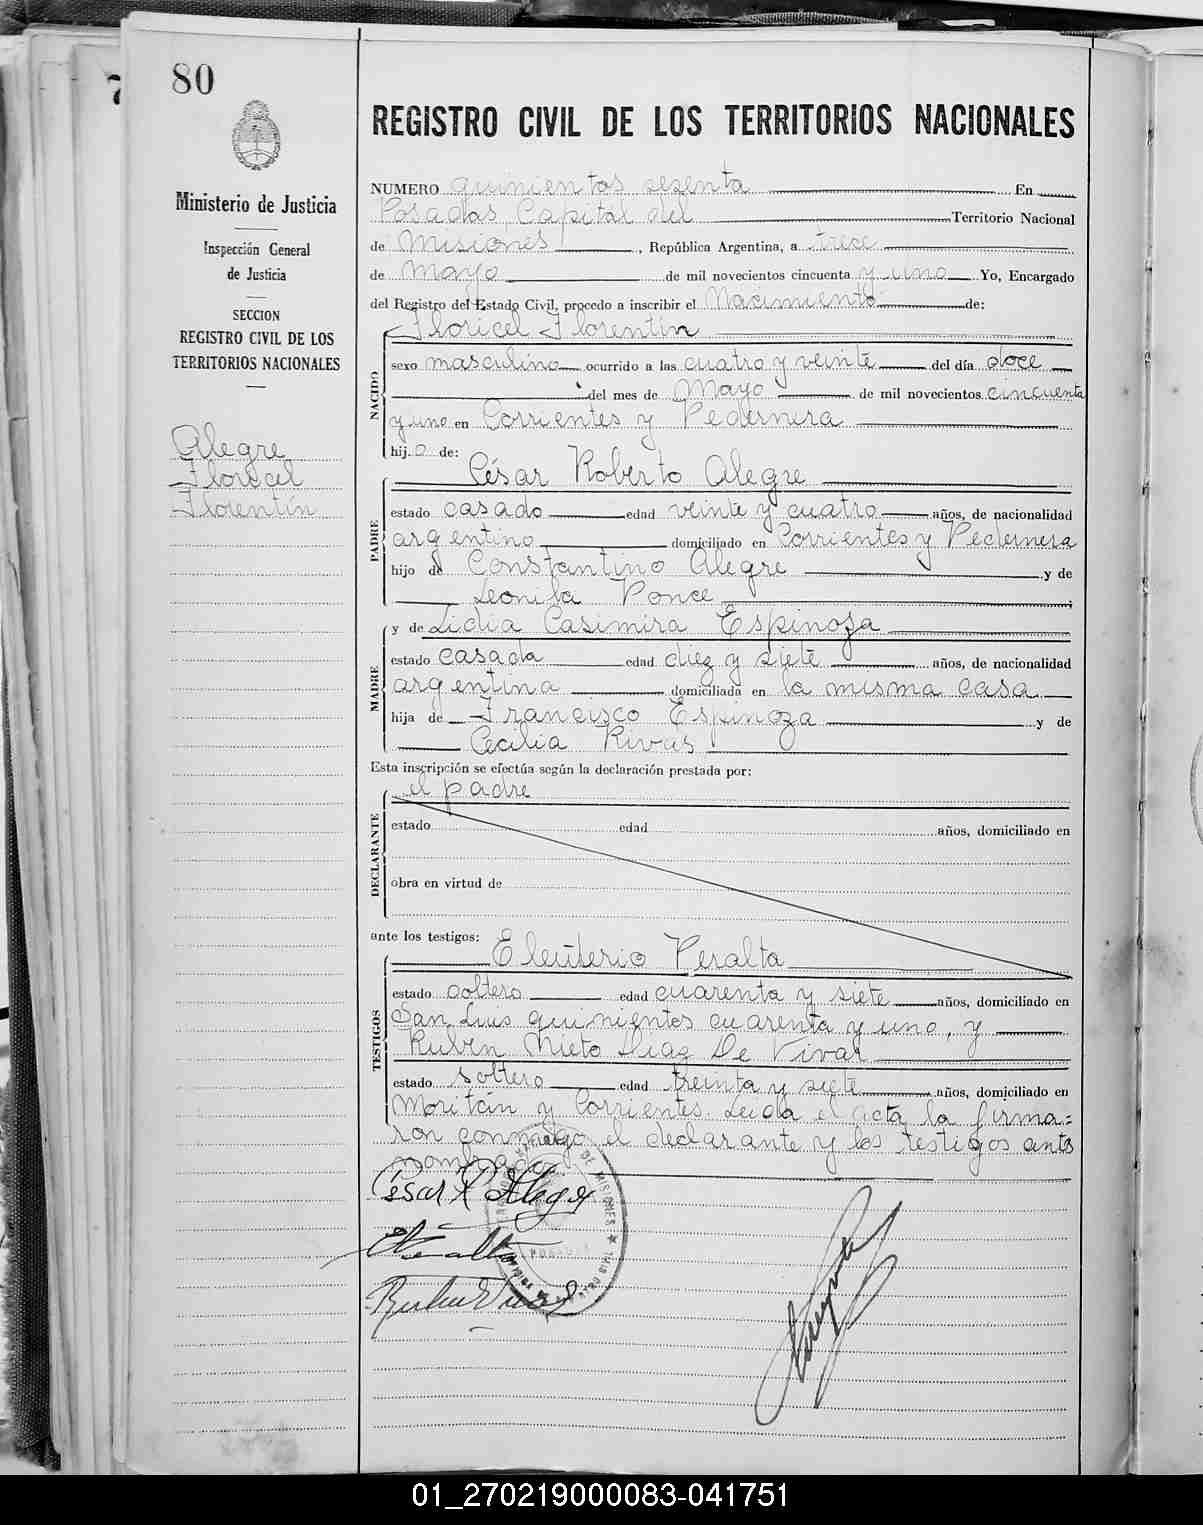 80
Ministerio de Justicia
Inspección General
de Justicia
SECCION
REGISTRO CIVIL DE LOS
TERRITORIOS NACIONALES
Alegre
Floricel
Florentín
REGISTRO CIVIL DE LOS TERRITORIOS NACIONALES
NUMERO quinientos sesenta En
Posadas, Capital del Territorio Nacional
de Misiones, República Argentina, a trece
de Mayo de mil novecientos cincuenta y uno Yo, Encargado
del Registro del Estado Civil, procedo a inscribir el Nacimiento de:
Floricel Florentín
NACIDO
sexo masculino ocurrido a las cuatro y veinte del día doce
del mes de Mayo de mil novecientos cincuenta
y uno en Corrientes y Pedernera
hij o de:
César Roberto Alegre
PADRE
estado casado edad veinte y cuatro años, de nacionalidad
argentino domiciliado en Corrientes y Pedernera
hijo de Constantino Alegre y de
Leonila Ponce
y de Lidia Casimira Espinoza
MADRE
estado casada edad diez y siete años, de nacionalidad
argentina domiciliada en la misma casa
hija de Francisco Espinoza y de
Cecilia Rivas
Esta inscripción se efectúa según la declaración prestada por:
el padre
DECLARANTE
estado edad años, domiciliado en
obra en virtud de
ante los testigos:
Eleuterio Peralta
TESTIGOS
estado soltero edad cuarenta y siete años, domiciliado en
San Luis quinientos cuarenta y uno, y
Rubén Nieto Diaz De Vivar
estado soltero edad treinta y siete años, domiciliado en
Moritán y Corrientes. Leida el acta la firma=
ron conmigo el declarante y los testigos ants
nombrados
César R Alegre
01_270219000083-041751